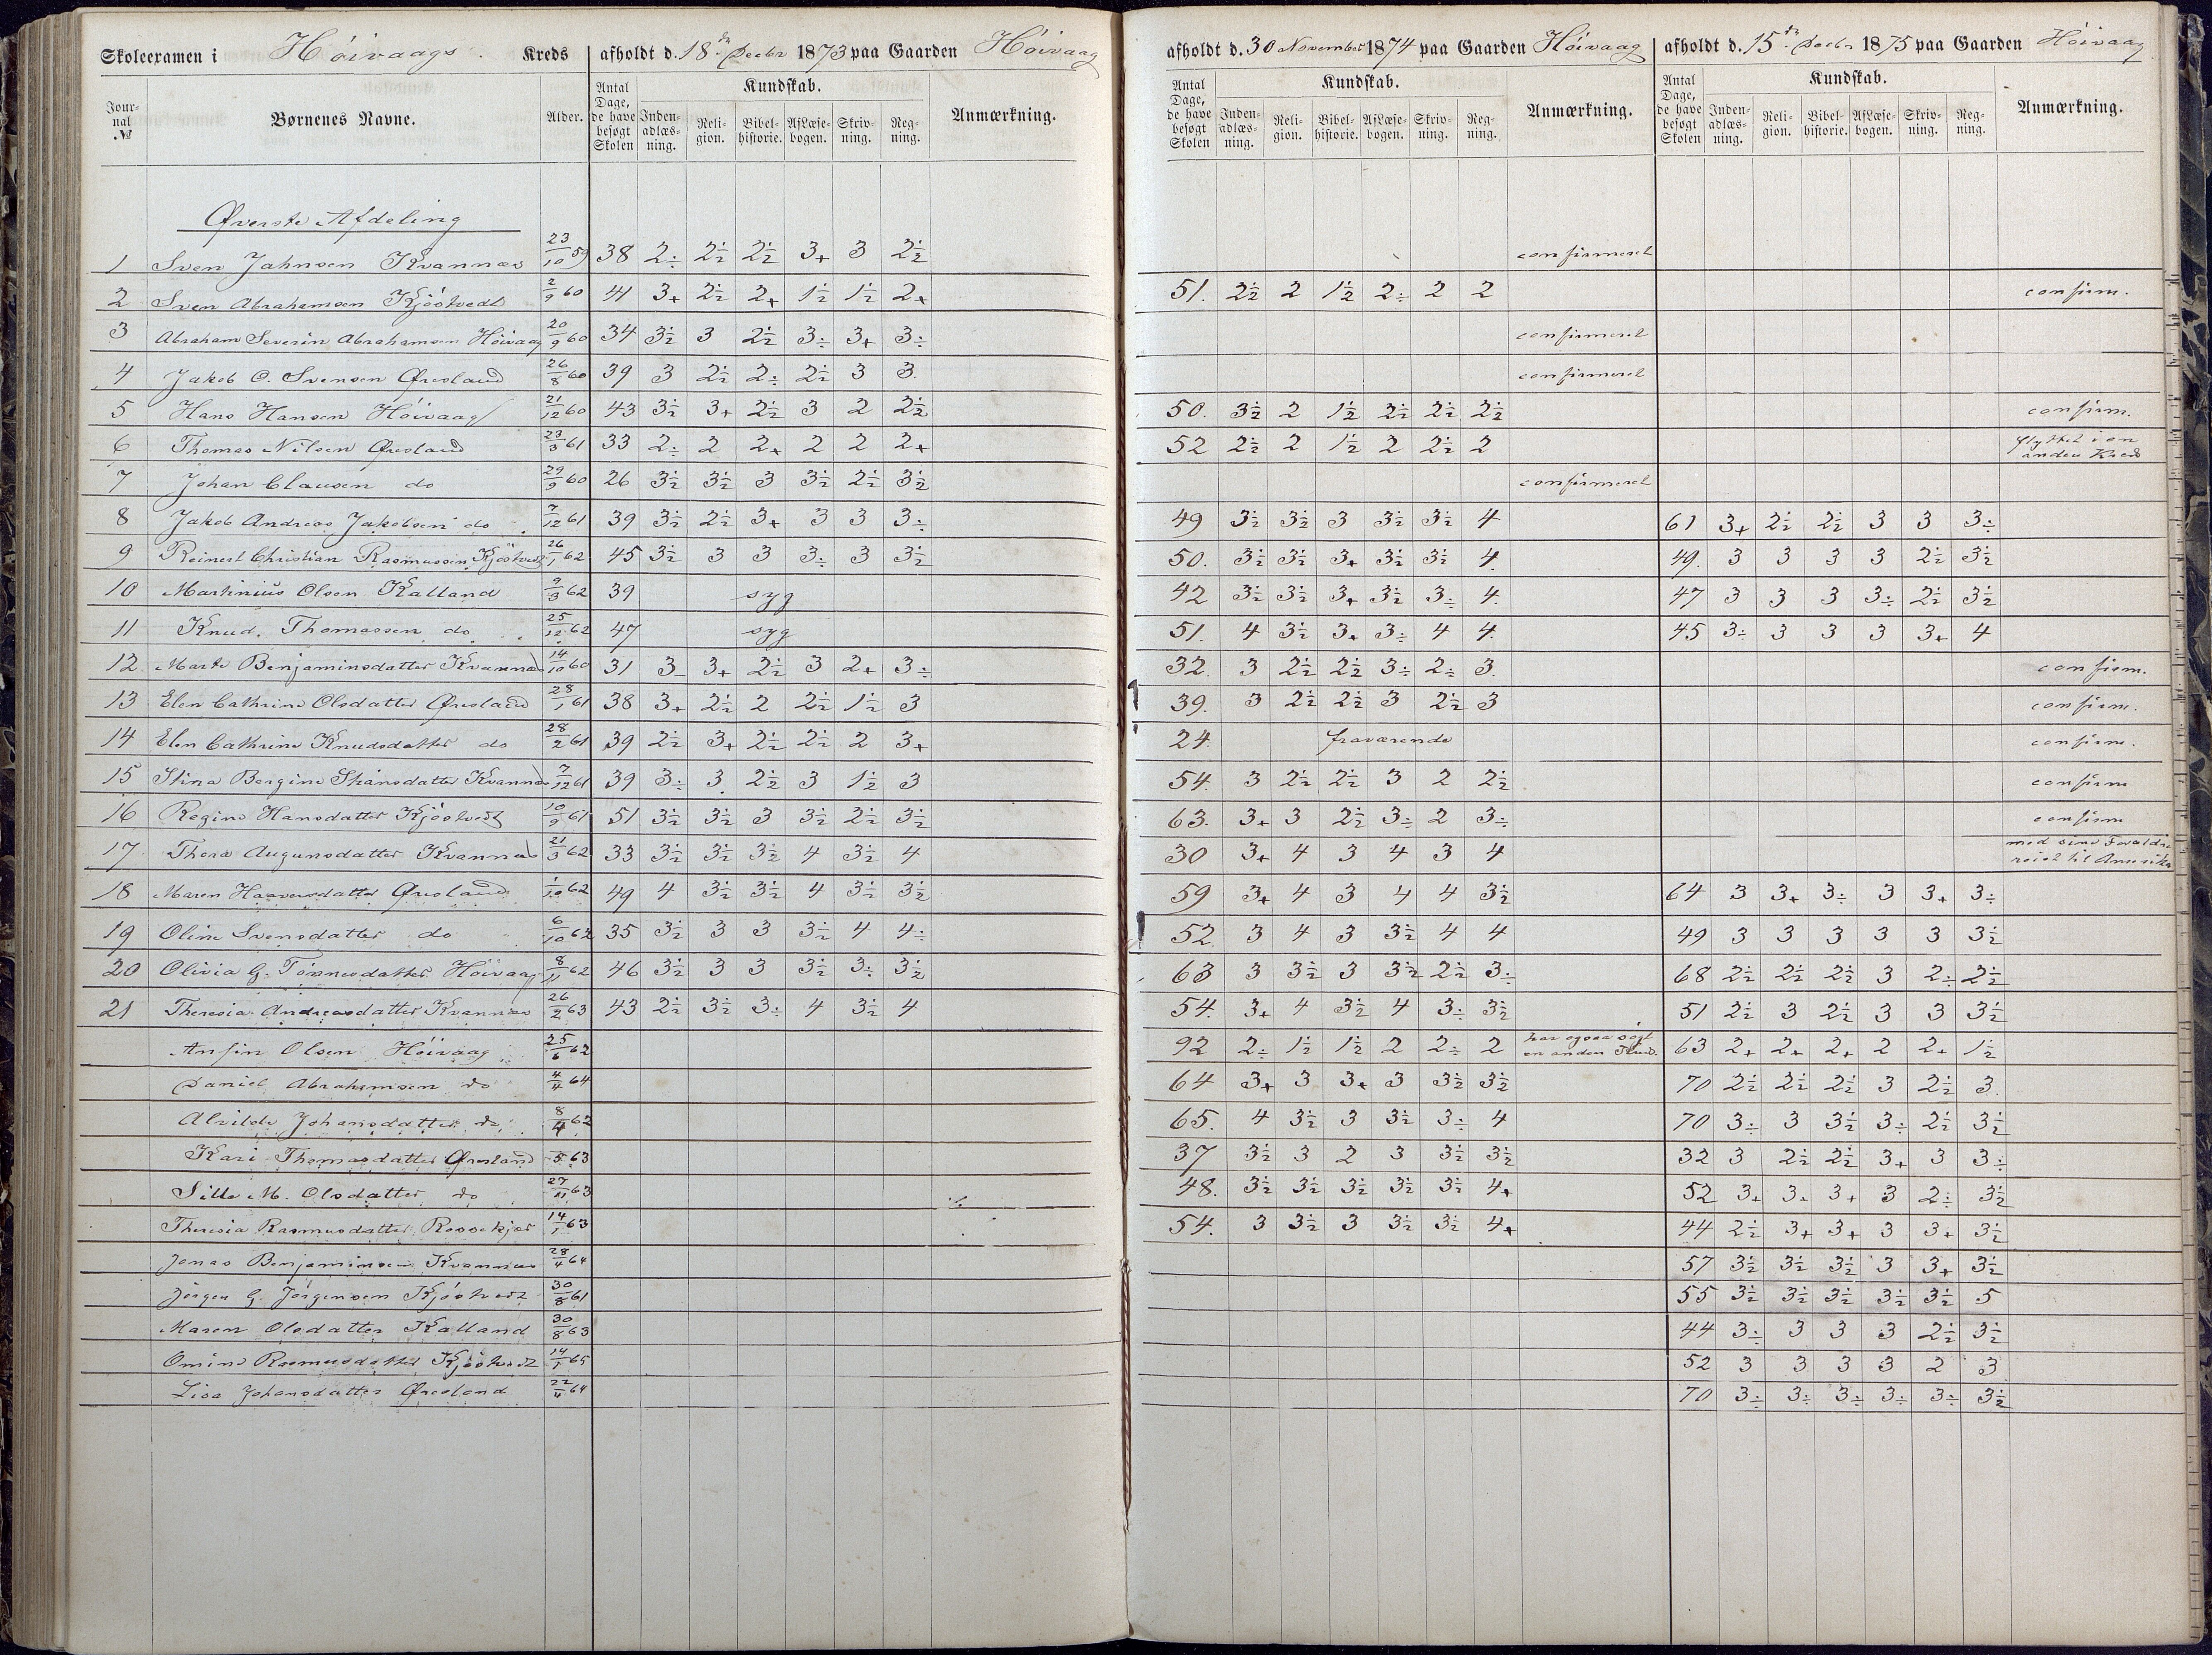 Skoleexamen i Høivaags Kreds afholdt d. 18de Decbr 1873 paa Gaarden Høivaag afholdt d. 30 November 1874 paa Gaarden Høivaag afholdt d. 15de Decbr 1875 paa Gaarden Høivaag
Journal № Børnenes Navne. Alder. Antal Dage, de have besøgt Skolen Kundskab. Indenadlæsning. Religion. Bibelhistorie. AfLæsebogen. Skrivning. Regning. Anmærkning. Antal Dage, de have besøgt Skolen Kundskab. Indenadlæsning. Religion. Bibelhistorie. AfLæsebogen. Skrivning. Regning. Anmærkning. Antal Dage, de have besøgt Skolen Kundskab. Indenadlæsning. Religion. Bibelhistorie. AfLæsebogen. Skrivning. Regning. Anmærkning.
Øverste Afdeling
1 Sven Jahnsen Kvannæs 23/10 59 38 2÷ 2½ 2½ 3+ 3 2½ confirmeret
2 Sven Abrahamsen Kjöstvedt 2/9 60 41 3+ 2½ 2+ 1½ 1½ 2+ 51. 2½ 2 1½ 2÷ 2 2 confirm.
3 Abraham Severin Abrahamsen Höivaag 20/9 60 34 3½ 3 2½ 3÷ 3+ 3÷ confirmeret
4 Jakob O. Svensen Øresland 26/8 60 39 3 2½ 2÷ 2½ 3 3. confirmeret
5 Hans Hansen Höivaag 21/12 60 43 3½ 3+ 2½ 3 2 2½ 50. 3½ 2 1½ 2½ 2½ 2½ confirm.
6 Thomas Nilsen Øresland 23/3 61 33 2÷ 2 2+ 2 2 2+ 52 2½ 2 1½ 2 2½ 2 flyttet i en anden Kreds
7 Johan Clausen do 29/9 60 26 3½ 3½ 3 3½ 2½ 3½ confirmeret
8 Jakob Andreas Jakobsen do 7/12 61 39 3½ 2½ 3+ 3 3 3÷ 49 3½ 3½ 3 3½ 3½ 4 61 3+ 2½ 2½ 3 3 3÷
9 Reinert Christian Rasmussen Kjöstvedt 26/1 62 45 3½ 3 3 3÷ 3 3½ 50. 3½ 3½ 3+ 3½ 3½ 4. 49. 3 3 3 3 2½ 3½
10 Martinius Olsen Kalland 9/3 62 39 syg 42 3½ 3½ 3+ 3½ 3÷ 4. 47 3 3 3 3÷ 2½ 3½
11 Knud. Thomassen do 25/12 62 47 syg 51. 4 3½ 3+ 3÷ 4 4. 45 3÷ 3 3 3 3+ 4
12. Marte Benjaminsdatter Kvannæs 14/10 60 31 3 3+ 2½ 3 2+ 3÷ 32. 3 2½ 2½ 3÷ 2÷ 3. confirm.
13 Elen Cathrine Olsdatter Øresland 28/1 61 38 3+ 2½ 2 2½ 1½ 3 39. 3 2½ 2½ 3 2½ 3 confirm.
14 Elen Cathrine Knudsdatter do 28/2 61 39 2½ 3+ 2½ 2½ 2 3+ 24. fraværende confirm.
15 Stina Bergine Stiansdatter Kvannæs 7/12 61 39 3÷ 3. 2½ 3 1½ 3 54. 3 2½ 2½ 3 2 2½ confirm
16 Regine Hansdatter Kjöstvedt 10/9 61 51 3½ 3½ 3 3½ 2½ 3½ 63. 3+ 3 2½ 3÷ 2 3÷ confirm
17 Thera Augunsdatter Kvannæs 21/3 62 33 3½ 3½ 3½ 4 3½ 4 30 3+ 4 3 4 3 4 med sine Forældre reist til Amerika
18 Maren Haavorsdatter Øresland 1/10 62 49 4 3½ 3½ 4 3½ 3½ 59 3+ 4 3 4 4 3½ 64 3 3+ 3÷ 3 3+ 3÷
19 Oline Svensdatter do 6/10 62 35 3½ 3 3 3½ 4 4÷ 52. 3 4 3 3½ 4 4 49 3 3 3 3 3 3½
20 Olivia G. Tönnesdatter Höivaag 8/11 62 46 3½ 3 3 3½ 3÷ 3½ 63 3 3½ 3 3½ 2½ 3÷ 68 2½ 2½ 2½ 3 2÷ 2½
21 Theresia Andreasdatter Kvannæs 26/2 63 43 2½ 3½ 3÷ 4 3½ 4 54. 3+ 4 3½ 4 3÷ 3½ 51 2½ 3 2½ 3 3 3½
Anfin Olsen Höivaag 25/6 62 92 2÷ 1½ 1½ 2 2÷ 2 har ogsaa sögt en anden 63 2+ 2+ 2+ 2 2+ 1½
Daniel Abrahamsen do 4/4 64 64 3+ 3 3+ 3 3½ 3½ 70 2½ 2½ 2½ 3 2½ 3.
Alvilde Johansdatter do 8/4 62 65. 4 3½ 3 3½ 3÷ 4 70 3÷ 3 3½ 3÷ 2½ 3½
Kari Thomasdatter Øresland 5 63 37 3½ 3 2 3 3½ 3½ 32 3 2½ 2½ 3+ 3 3÷
Sille M. Olsdatter do 27/11 63 48. 3½ 3½ 3½ 3½ 3½ 4+ 52 3+ 3+ 3+ 3 2÷ 3½
Theresia Rasmusdatter Rossekjær 14/1 63 54. 3 3½ 3 3½ 3½ 4+ 44 2½ 3+ 3+ 3 3+ 3½
Jonas Benjaminsen Kvannæs 28/4 64 57 3½ 3½ 3½ 3 3+ 3½
Jörgen G. Jörgensen Kjöstvedt 30/8 61 55 3½ 3½ 3½ 3½ 3½ 5
Maren Olsdatter Kalland 30/8 63 44 3÷ 3 3 3 2½ 3½
Omine Rasmusdatter Kjöstvedt 14/1 65 52 3 3 3 3 2 3
Lisa Johansdatter Øresland 22/4 64 70 3÷ 3÷ 3÷ 3÷ 3÷ 3½